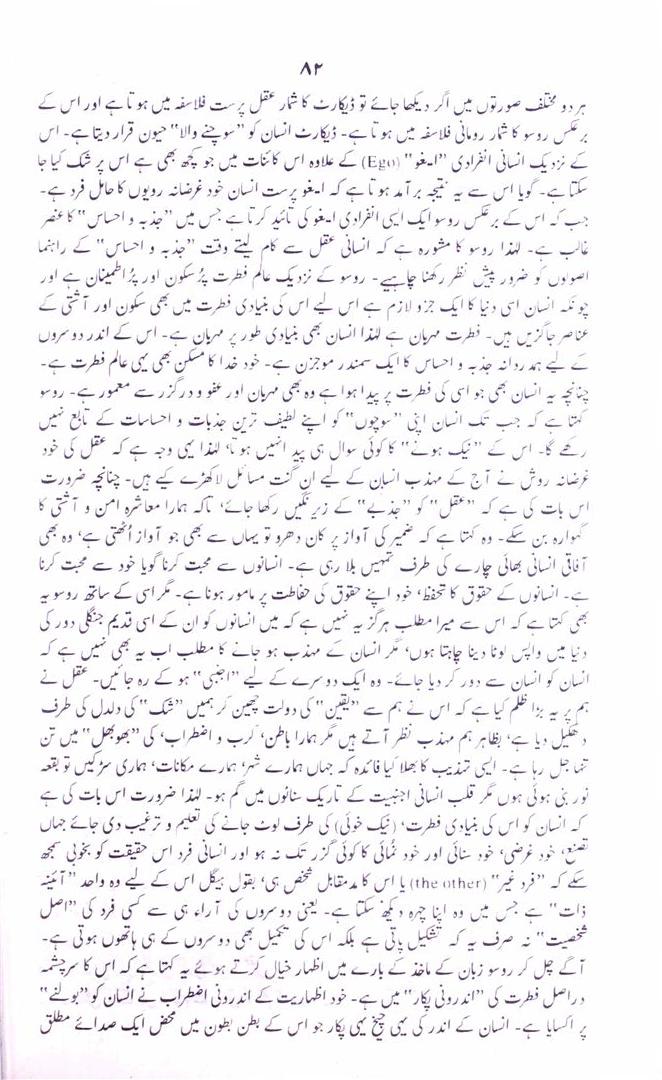 ۸۲
ہر دو مختلف صورتوں میں اگر دیکھا جائے تو ڈیکارٹ کا شمار عقل پرست فلاسفہ میں ہوتا ہے اور اس کے
برعکس روسو کا شمار رومانی فلاسفہ میں ہوتا ہے۔ ڈیکارٹ انسان کو ”سوچنے والا“ حیوان قرار دیتا ہے۔ اس
کے نزدیک انسانی انفرادی ”ایغو“ (Ego) کے علاوہ اس کائنات میں جو کچھ بھی ہے اس پر شک کیا جا
سکتا ہے۔ گویا اس سے یہ نتیجہ برآمد ہوتا ہے کہ ایغو پرست انسان خود غرضانہ رویوں کا حامل فرد ہے۔
جب کہ اس کے برعکس روسو ایک ایسی انفرادی ایغو کی تائید کرتا ہے جس میں ”جذبہ و احساس“ کا عنصر
غالب ہے۔ لہٰذا روسو کا مشورہ ہے کہ انسانی عقل سے کام لیتے وقت ”جذبہ و احساس“ کے راہنما
اصولوں کو ضرور پیش نظر رکھنا چاہیے۔ روسو کے نزدیک عالم فطرت پرُسکون اور پرُاطمینان ہے اور
چونکہ انسان اسی دنیا کا ایک جزو لازم ہے اس لیے اس کی بنیادی فطرت میں بھی سکون اور آشتی کے
عناصر جاگزیں ہیں۔ فطرت مہربان ہے لہٰذا انسان بھی بنیادی طور پر مہربان ہے۔ اس کے اندر دوسروں
کے لیے ہمدردانہ جذبہ و احساس کا ایک سمندر موجزن ہے۔ خود خدا کا مسکن بھی یہی عالم فطرت ہے۔
چنانچہ یہ انسان بھی جو اسی کی فطرت پر پیدا ہوا ہے وہ بھی مہربان اور عفو و درگزر سے معمور ہے۔ روسو
کہتا ہے کہ جب تک انسان اپنی ”سوچوں“ کو اپنے لطیف ترین جذبات و احساسات کے تابع نہیں
رکھے گا۔ اس کے ”نیک ہونے“ کا کوئی سوال ہی پیدا نہیں ہوتا، لہٰذا یہی وجہ ہے کہ عقل کی خود
غرضانہ روش نے آج کے مہذب انسان کے لیے ان گنت مسائل لاکھڑے کیے ہیں۔ چنانچہ ضرورت
اس بات کی ہے کہ ”عقل“ کو ”جذبے“ کے زیر نگیں رکھا جائے، تاکہ ہمارا معاشرہ امن و آشتی کا
گہوارہ بن سکے۔ وہ کہتا ہے کہ ضمیر کی آواز پر کان دھرو تو یہاں سے بھی جو آواز اُٹھتی ہے، وہ بھی
آفاقی انسانی بھائی چارے کی طرف تمہیں بلا رہی ہے۔ انسانوں سے محبت کرنا گویا خود سے محبت کرنا
ہے۔ انسانوں کے حقوق کا تحفظ، خود اپنے حقوق کی حفاظت پر مامور ہونا ہے۔ مگر اسی کے ساتھ روسو یہ
بھی کہتا ہے کہ اس سے میرا مطلب ہرگز یہ نہیں ہے کہ میں انسانوں کو ان کے اسی قدیم جنگلی دور کی
دنیا میں واپس لوٹا دینا چاہتا ہوں، مگر انسان کے مہذب ہو جانے کا مطلب اب یہ بھی نہیں ہے کہ
انسان کو انسان سے دور کر دیا جائے۔ وہ ایک دوسرے کے لیے ”اجنبی“ ہو کے رہ جائیں۔ عقل نے
ہم پر یہ بڑا ظلم کیا ہے کہ اس نے ہم سے ”یقین“ کی دولت چھین کر ہمیں ”شک“ کی دلدل کی طرف
دھکیل دیا ہے، بظاہر ہم مہذب نظر آتے ہیں مگر ہمارا باطن، کرب و اضطراب، کی ”بھوبھل“ میں تن
تنہا جل رہا ہے۔ ایسی تہذیب کا بھلا کیا فائدہ کہ جہاں ہمارے شہر، ہمارے مکانات، ہماری سڑکیں تو بقعہ
نور بنی ہوئی ہوں مگر قلب انسانی اجنبیت کے تاریک سناٹوں میں گم ہو۔ لہٰذا ضرورت اس بات کی ہے
کہ انسان کو اس کی بنیادی فطرت، (نیک خوئی) کی طرف لوٹ جانے کی تعلیم و ترغیب دی جائے جہاں
تصنع، خود غرضی، خود ستائی اور خود نُمائی کا کوئی گزر تک نہ ہو اور انسانی فرد اس حقیقت کو بخوبی سمجھ
سکے کہ ”فرد غیر“ (the other) یا اس کا مدمقابل شخص ہی، بقول ہیگل اس کے لیے وہ واحد ”آئینہ
ذات“ ہے جس میں وہ اپنا چہرہ دیکھ سکتا ہے۔ یعنی دوسروں کی آراء ہی سے کسی فرد کی ”اصل
شخصیت“ نہ صرف یہ کہ تشکیل پاتی ہے بلکہ اس کی تکمیل بھی دوسروں کے ہی ہاتھوں ہوتی ہے۔
آگے چل کر روسو زبان کے ماخذ کے بارے میں اظہار خیال کرتے ہوئے یہ کہتا ہے کہ اس کا سرچشمہ
دراصل فطرت کی ”اندرونی پکار“ میں ہے۔ خود اظہاریت کے اندرونی اضطراب نے انسان کو ”بولنے“
پر اکسایا ہے۔ انسان کے اندر کی یہی چیخ یہی پکار جو اس کے بطن بطون میں محض ایک صدائے مطلق